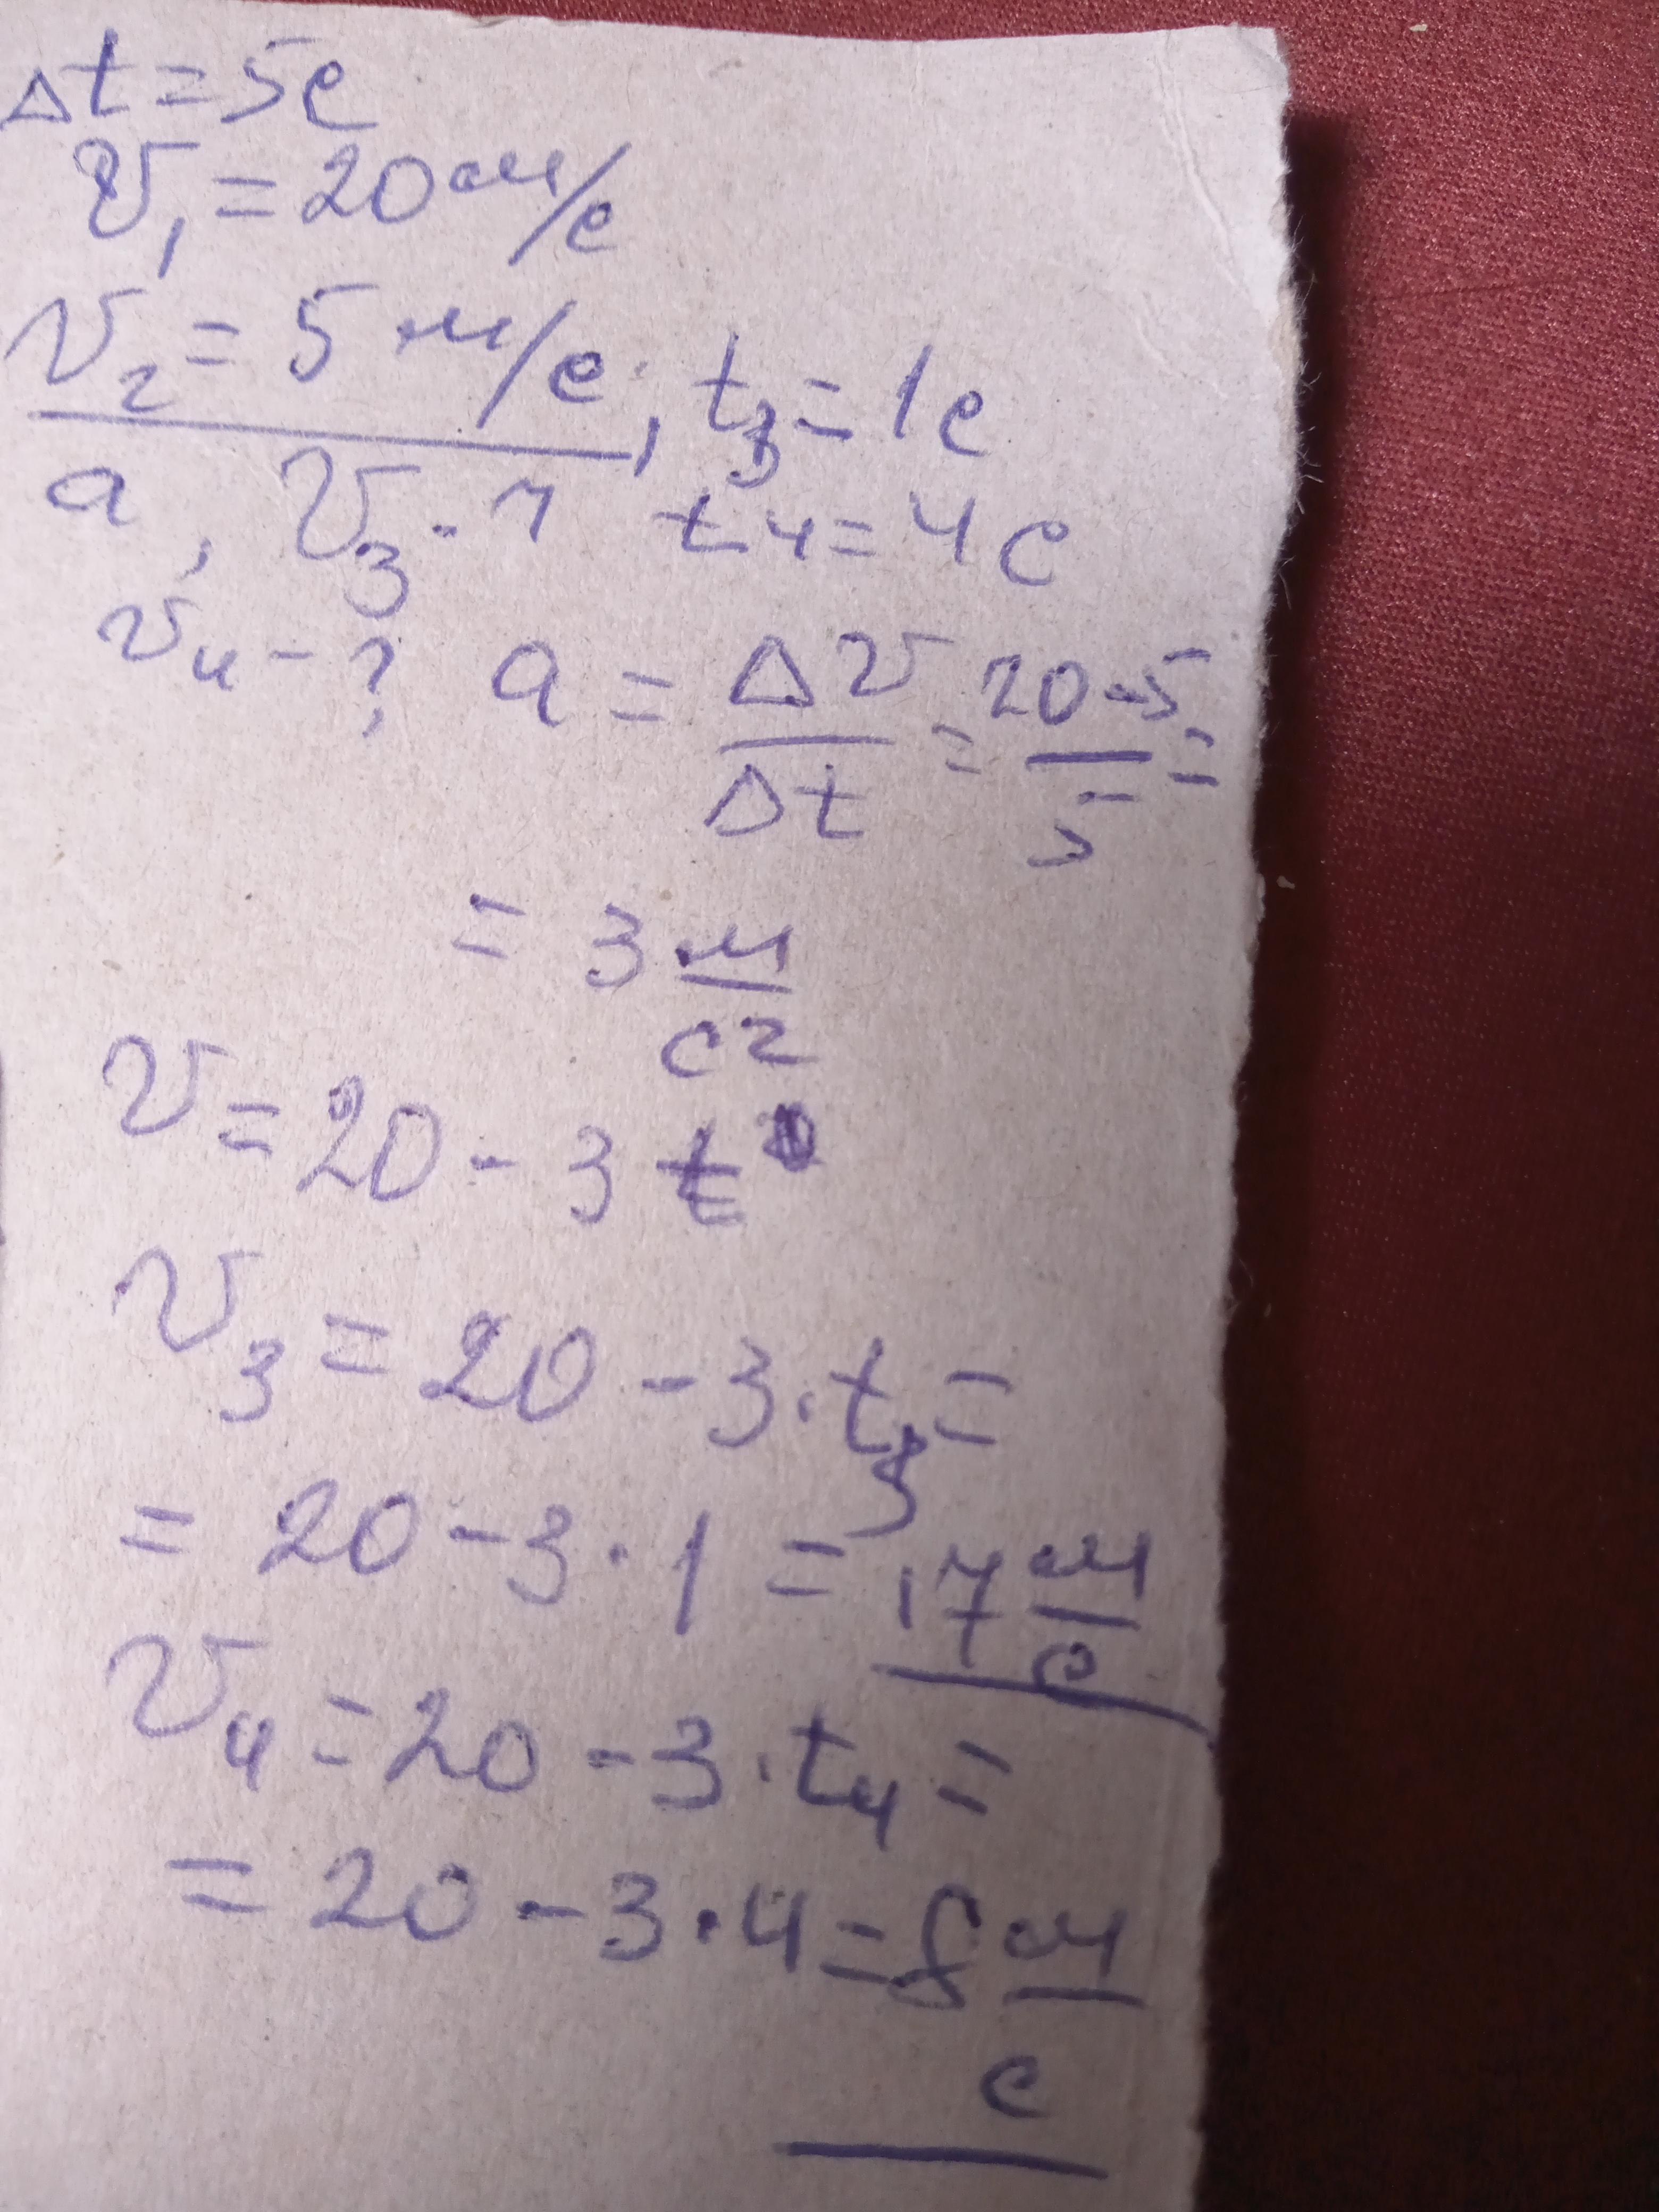 Δt = 5с
v₁ = 20 м/с
v₂ = 5 м/с, t₃ = 1с
a, v₃ - ? t₄ = 4с
v₄ - ? a = Δv/Δt = 20-5/5 =
= 3 м/с²
v = 20 - 3t
v₃ = 20 - 3·t₃ =
= 20 - 3·1 = 17 м/с
v₄ = 20 - 3·t₄ =
= 20 - 3·4 = 8 м/с